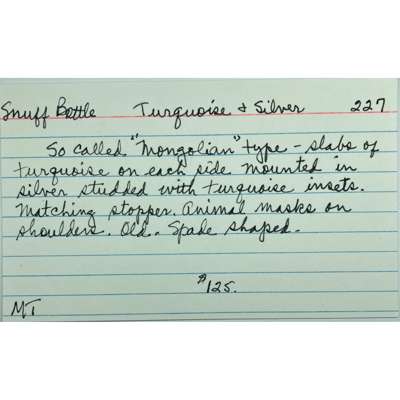 Snuff Bottle Turquoise & Silver 227
So called "Mongolian" type - slabs of
turquoise on each side mounted in
silver studded with turquoise insets.
Matching stopper. Animal masks on
shoulders. Old. Spade shaped.
$125.
MT